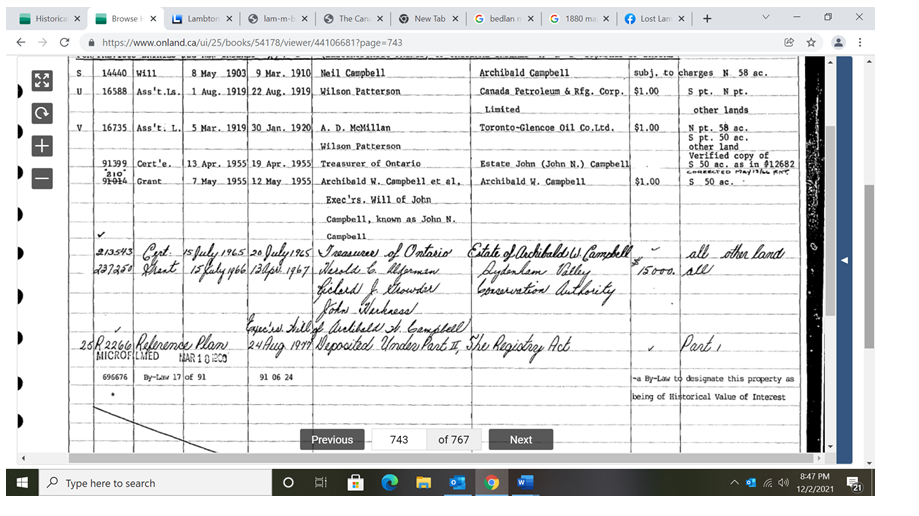 Historica × Browse × Lambton × lam-m-b × The Can × New Tab × bedlan m × 1880 ma × Lost Lam × +
https://www.onland.ca/ui/25/books/54178/viewer/44106681?page=743
S 14440 Will 8 May 1903 9 Mar. 1910 Neil Campbell Archibald Campbell subj. to charges N 58 ac.
U 16588 Ass't.Ls. 1 Aug. 1919 22 Aug. 1919 Wilson Patterson Canada Petroleum & Rfg. Corp. $1.00 S pt. N pt.
Limited other lands
V 16735 Ass't. L. 5 Mar. 1919 30 Jan. 1920 A. D. McMillan Toronto-Glencoe Oil Co.Ltd. $1.00 N pt. 58 ac.
S pt. 50 ac.
Wilson Patterson other land
Verified copy of
91399 Cert'e. 13 Apr. 1955 19 Apr. 1955 Treasurer of Ontario Estate John (John N.) Campbell S 50 ac. as in #12682
210 CORRECTED
91014 Grant 7 May 1955 12 May 1955 Archibald W. Campbell et al, Archibald W. Campbell $1.00 S 50 ac.
Exec'rs. Will of John
Campbell, known as John N.
Campbell
213543 Cert. 15 July 1965 20 July 1965 Treasurer of Ontario Estate of Archibald W. Campbell all other land
227250 Grant 15 July 1966 13 Apl. 1967 Harold C. Sydenham Valley $15000. all
Richard J. Conservation Authority
John Harkness
Exec'rs. Will of Archibald W. Campbell
25R2266 Reference Plan 24 Aug. 1977 Deposited Under Part II, The Registry Act Part 1
MICROFILMED MAR 10
696676 By-Law 17 of 91 91 06 24 -a By-Law to designate this property as
being of Historical Value of Interest
Previous 743 of 767 Next
Type here to search
8:47 PM
12/2/2021
21